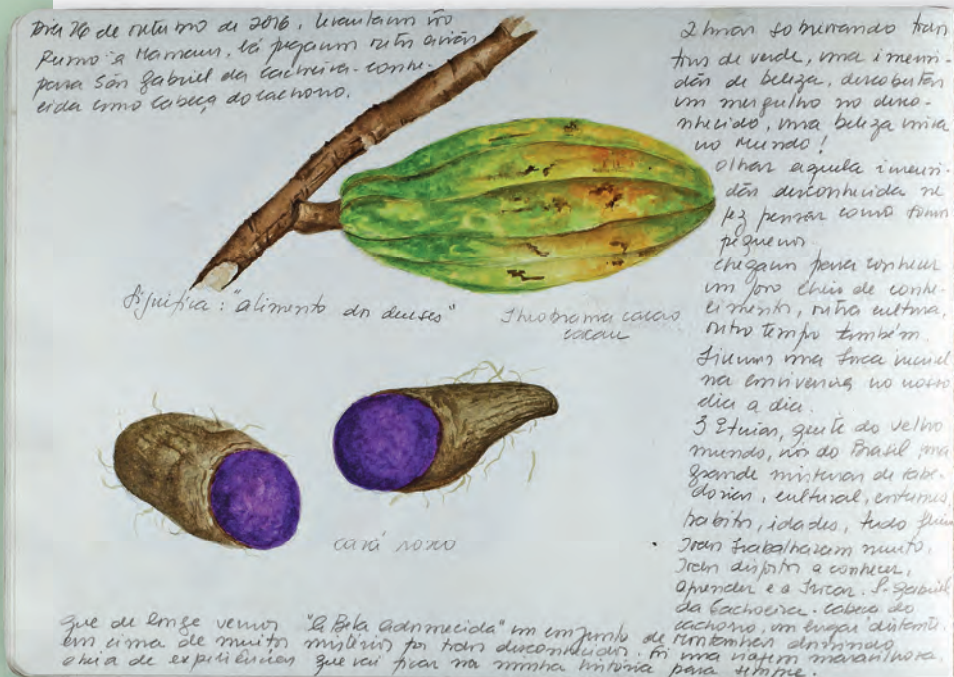 Dia 26 de outubro de 2016, levantamos vôo
Rumo a Manaus, lá pegamos outro avião
para São Gabriel da Cachoeira - conhe-
cida como cabeça do cachorro.
Significa: "alimento dos deuses"
Theobroma cacao
cacau
cará roxo
2 horas sobrevoando tons
de verde, uma imensi-
dão de beleza, descobertas
um mergulho no desco-
nhecido, uma beleza única
no Mundo!
Olhar aquela imensi-
dão desconhecida
fez pensar como somos
pequenos.
Chegamos para conhecer
um povo cheio de conhe-
cimento, outra cultura,
outro tempo também.
Tivemos uma troca incrível
na convivência no nosso
dia a dia.
3 Etnias, gente do velho
mundo, nós do Brasil, uma
grande mistura de sabe-
dorias, cultural, costumes,
habitos, idades, tudo
Todos trabalharam muito.
Todos dispostos a conhecer,
aprender e a trocar. S. Gabriel
da Cachoeira. Cabeça do
cachorro, um lugar distante.
que de longe vemos "a Bela adormecida" um conjunto de montanhas dormindo
em cima de muitos mistérios por todos desconhecidos. Foi uma viagem maravilhosa,
cheia de experiências que vai ficar na minha história para sempre.